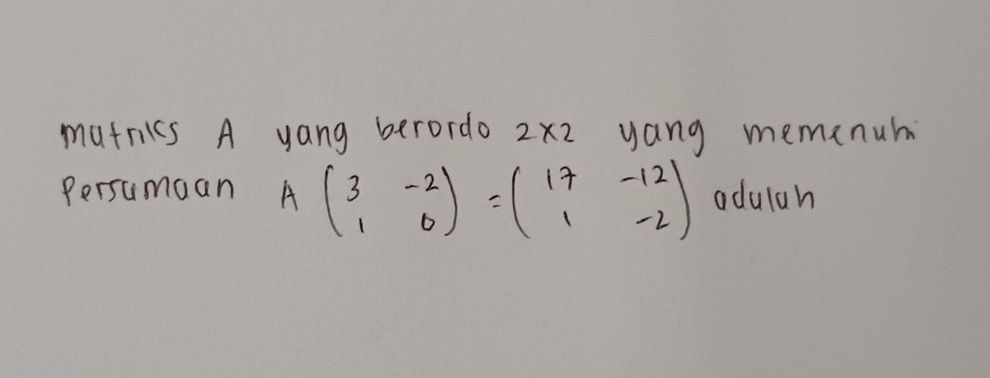 matriks A yang berordo 2x2 yang memenuhi
Persamaan A (3 -2) = (17 -12) adalah
(1 0) (1 -2)